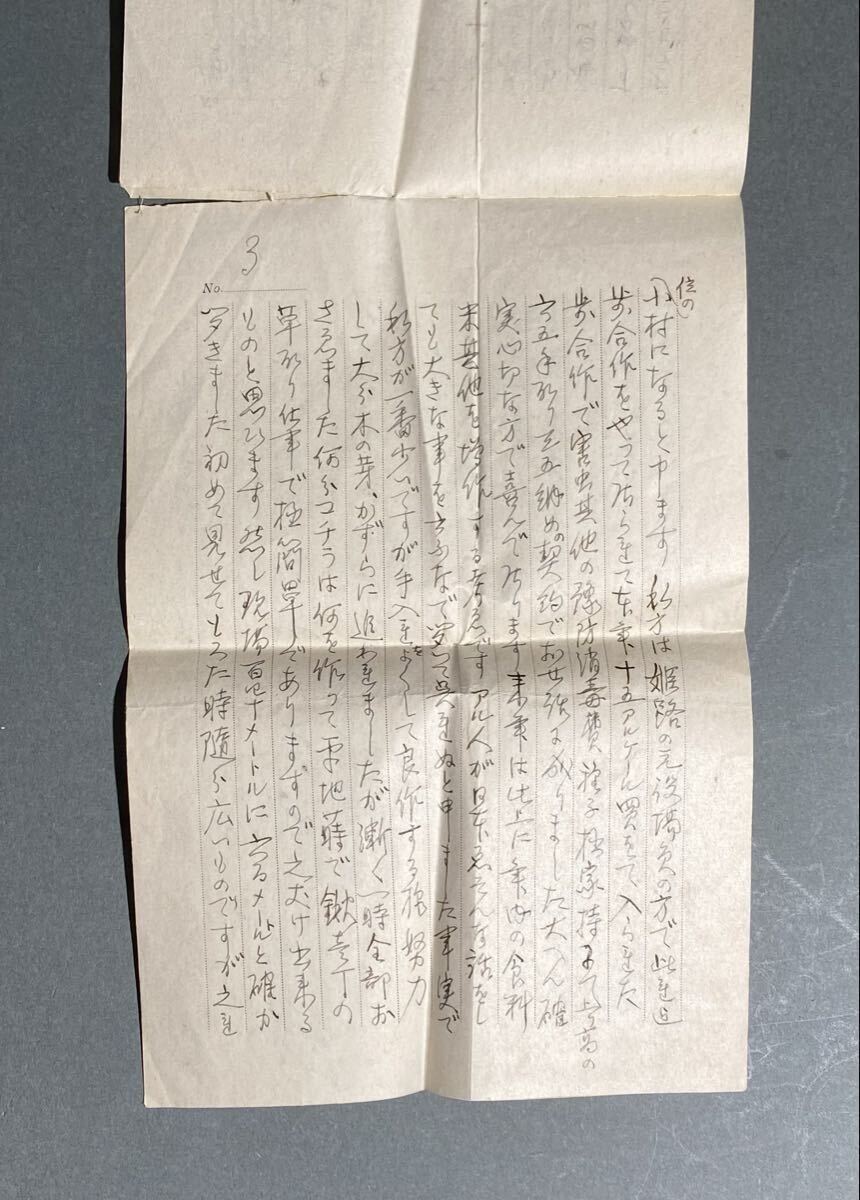 No. 3
位の
村になると申ます 私方は姫路の元役場員の方で此迄
歩合作をやって居られて本年十五アルケール買って入られた
歩合作で害虫其他の豫防消毒費種子極家持にて上高の
契約でお世話に成りました大へん確
実心切な方で喜んで居ります来年は此上に年内の食料
米其他を増作する考えです アル人が日本えそんな話をし
ても大きな事を云ふなで聞いて呉れぬと申ました事実で
私方が一番少いですが手入をよくして良作する様努力
して大分木の芽、かずらに追われましたが漸く一時全部お
さえました何分コチラは何を作って平地蒔で鍬壱丁の
草取り仕事で極簡単でありますので之だけ出来る
ものと思ひます 然し現場百七十メートルに メートルと確か
聞きました初めて見せてもろた時随分広いものですが之を